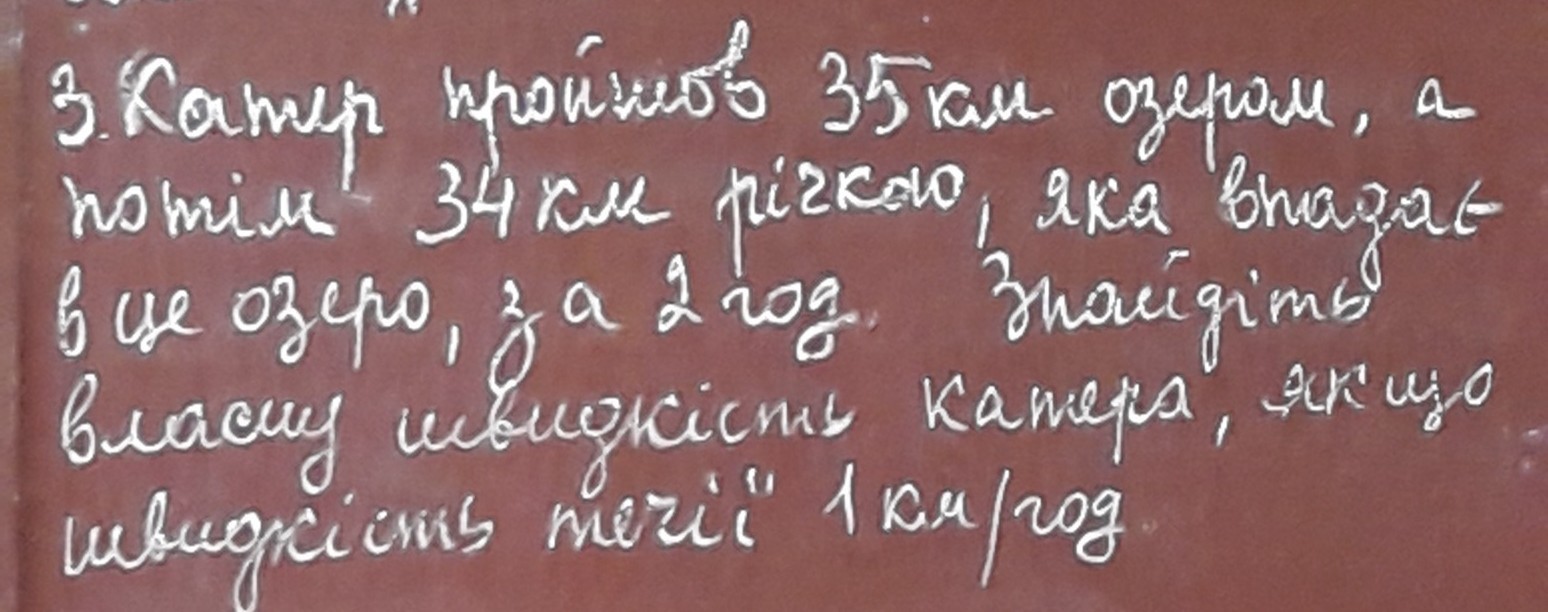 3. Катер пройшов 35 км озером, а
потім 34 км річкою, яка впадає
в це озеро, за 2 год. Знайдіть
власну швидкість катера, якщо
швидкість течії 1 км/год.